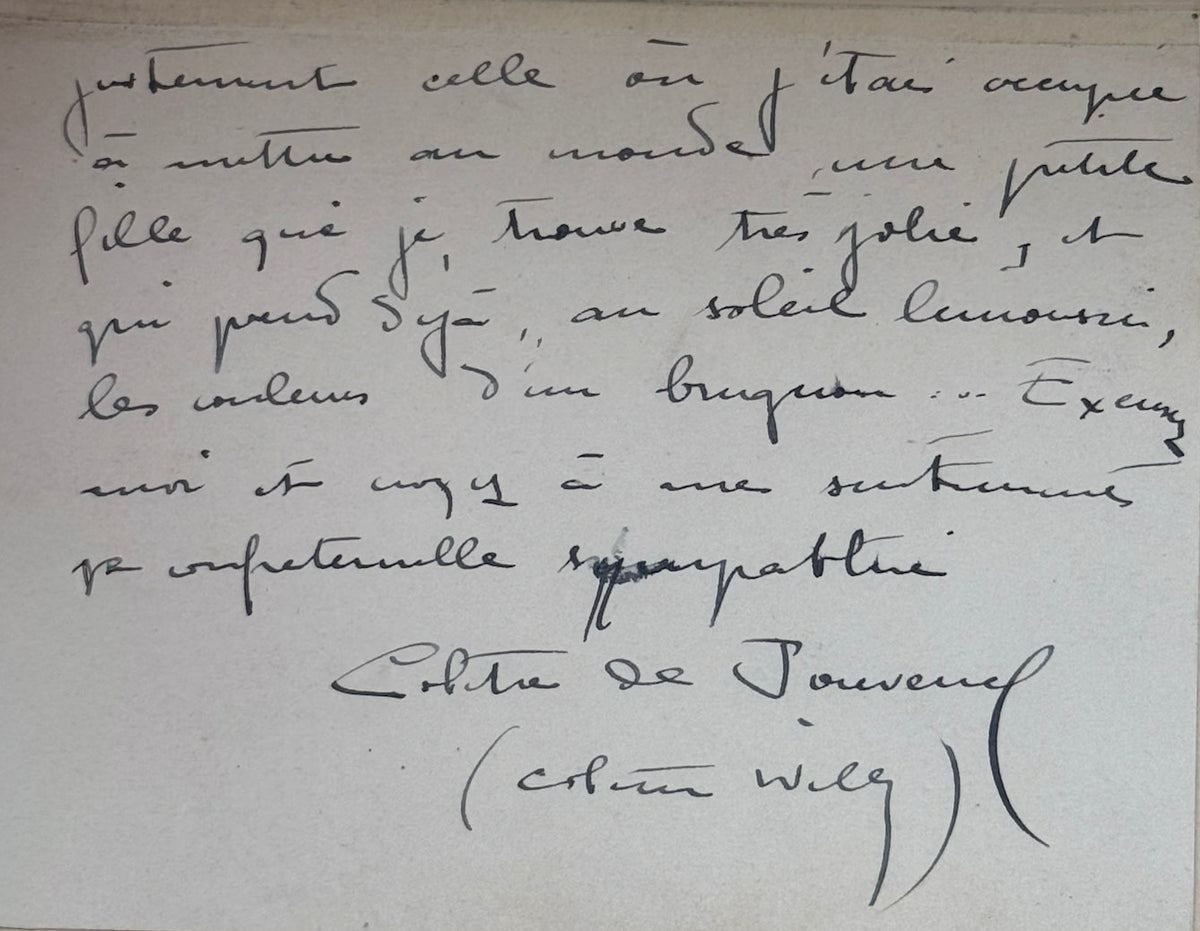 justement celle où j'étais occupée
à mettre au monde une petite
fille que je trouve très jolie, et
qui prend déjà, au soleil limousin,
les couleurs d'un brugnon... Excusez
moi et croyez à mes sentiments
de confraternelle sympathie
Colette de Jouvenel
(Colette Willy)